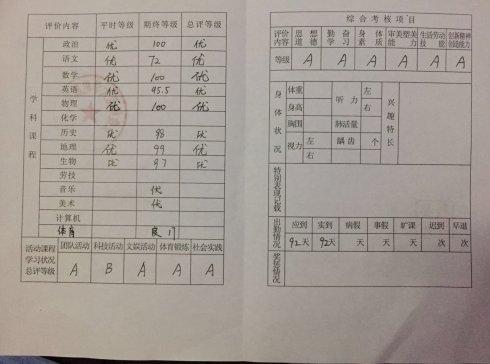 评价内容 平时等级 期终等级 总评等级
学科课程
政治 优 100 优
语文 优 72 优
数学 优 100 优
英语 优 95.5 优
物理 优 100 优
化学
历史 优 98 优
地理 优 99 优
生物 优 97 优
劳技
音乐 优
美术 优
计算机
体育 良
活动课程学习状况总评等级
团队活动 科技活动 文娱活动 体育锻炼 社会实践
A B A A A
综合考核项目
评价内容 思想思德 勤奋学习 身体素质 审美塑美能力 生活劳动技能 创新精神创造能力
等级 A A A A A A
身体状况
体重 听力 左 兴趣特长
身高 右
胸围 肺活量
视力 左 龋齿 个
右
特别表现记载
出勤情况
应到 实到 病假 事假 旷课 迟到 早退
92天 92天 天 天 天 次 次
奖惩情况